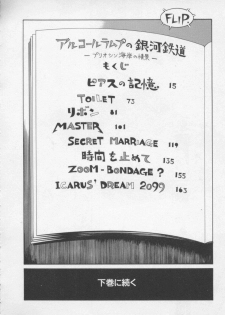 FLIP
アルコールランプの銀河鉄道
ープリオシン海岸の情景ー
もくじ
ピアスの記憶 15
TOILET 73
リボン 81
MASTER 101
SECRET MARRIAGE 119
時間を止めて 135
ZOOM-BONDAGE? 155
ICARUS' DREAM 2099 163
下巻に続く